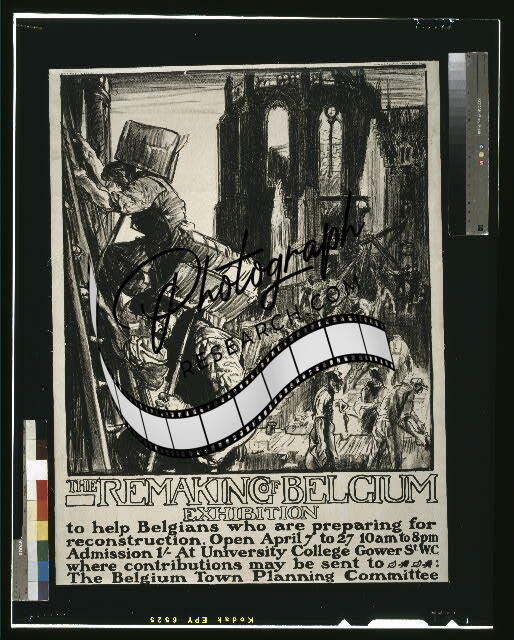 Photograph
RESEARCH.COM
THE REMAKING OF BELGIUM
EXHIBITION
to help Belgians who are preparing for
reconstruction. Open April 7 to 27 10am to 8pm
Admission 1/- At University College Gower St. WC
where contributions may be sent to :
The Belgium Town Planning Committee
Kodak EPY 6525